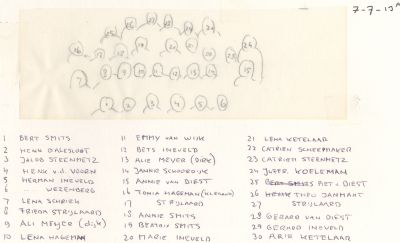 7-7-13A
1 BERT SMITS
2 HENK DALESLOOT
3 JACOB STEENMETZ
4 HENK v.d. VOORN
5 HERMAN INEVELD
6 " WEZENBERG
7 LENA SCHRIEK
8 FRIEDA STRIJLAARD
9 ALI MEYER (dijk)
10 LENA HAGEMAN
11 EMMY VAN WIJK
12 BETS INEVELD
13 ALIE MEYER (DIRK)
14 JANNIE SCHOORDIJK
15 ANNIE VAN DIEST
16 TONIA HAGEMAN
17 STRIJLAARD
18 ANNIE SMITS
19 BEATRIX SMITS
20 MARIE INEVELD
21 LENA KETELAAR
22 CATRIEN SCHEEPMAKER
23 CATRIEN STEENMETZ
24 JUFER KOELEMAN
25 BERT SMITS PIET v. DIEST
26 HENK THEO DANMART
27 STRIJLAARD
28 GERARD VAN DIEST
29 GERHARD INEVELD
30 ARIE KETELAAR